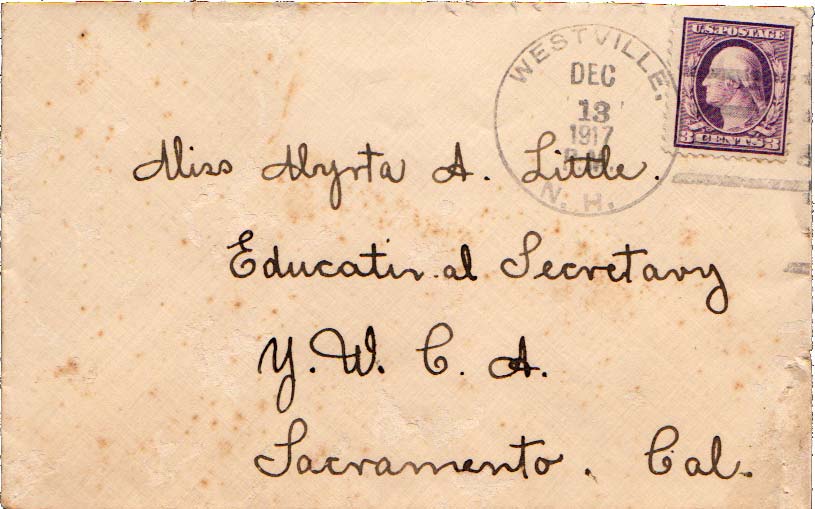 WESTVILLE,
DEC
13
1917
P.M.
N. H.
U.S. POSTAGE
3 CENTS 3
Miss Myrta A. Little.
Educational Secretary
Y. W. C. A.
Sacramento. Cal.